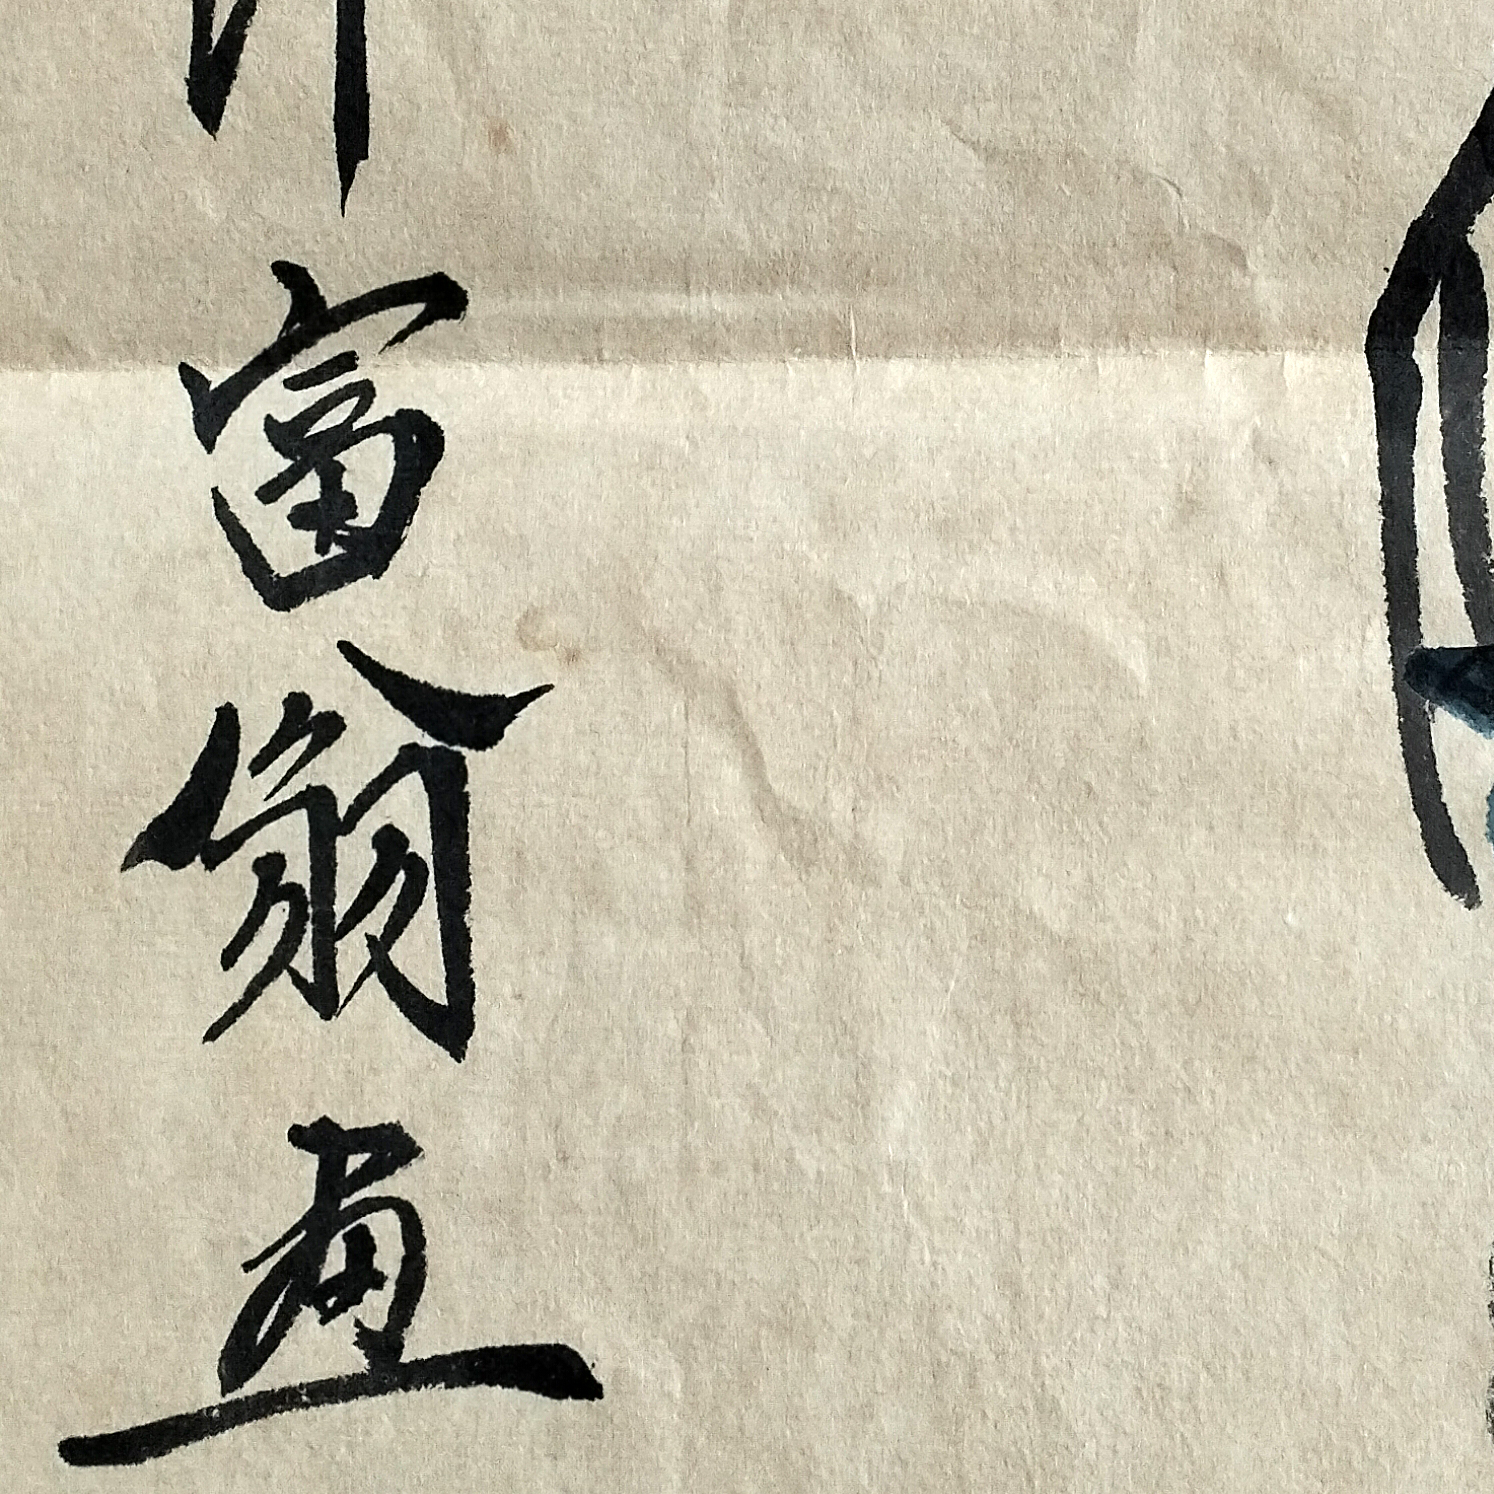 富翁画